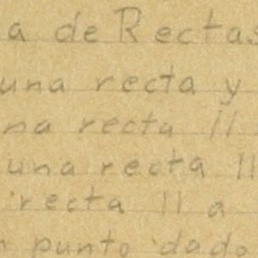 a de Rectas
una recta y
na recta ||
una recta ||
recta || a
n punto dado